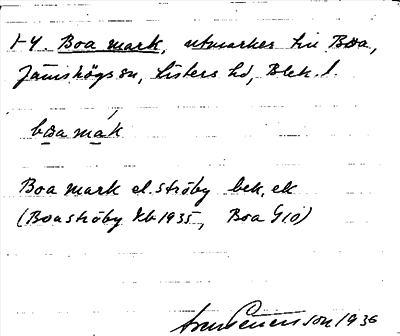 t-y. Boa mark, utmarker till Boa,
Jämshögs sn, Listers hd, Blek. l.
boa mák
Boa mark el. ströby bek. ek
(Boaströby Kb 1935, Boa G10)
1936